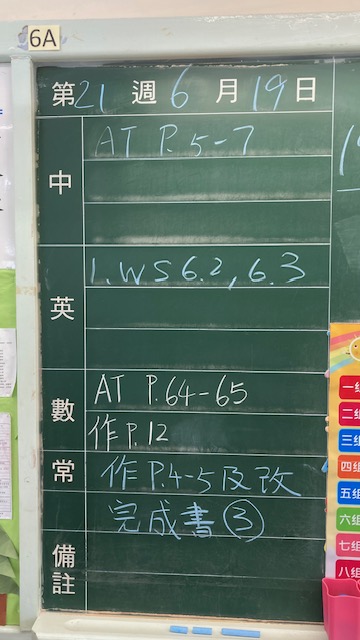 6A
第21週6月19日
中
AT P.5-7
英
1. WS 6.2, 6.3
數
AT P.64-65
作P.12
常
作P.4-5及改
完成書③
備註
一組
二組
三組
四組
五組
六組
七組
八組